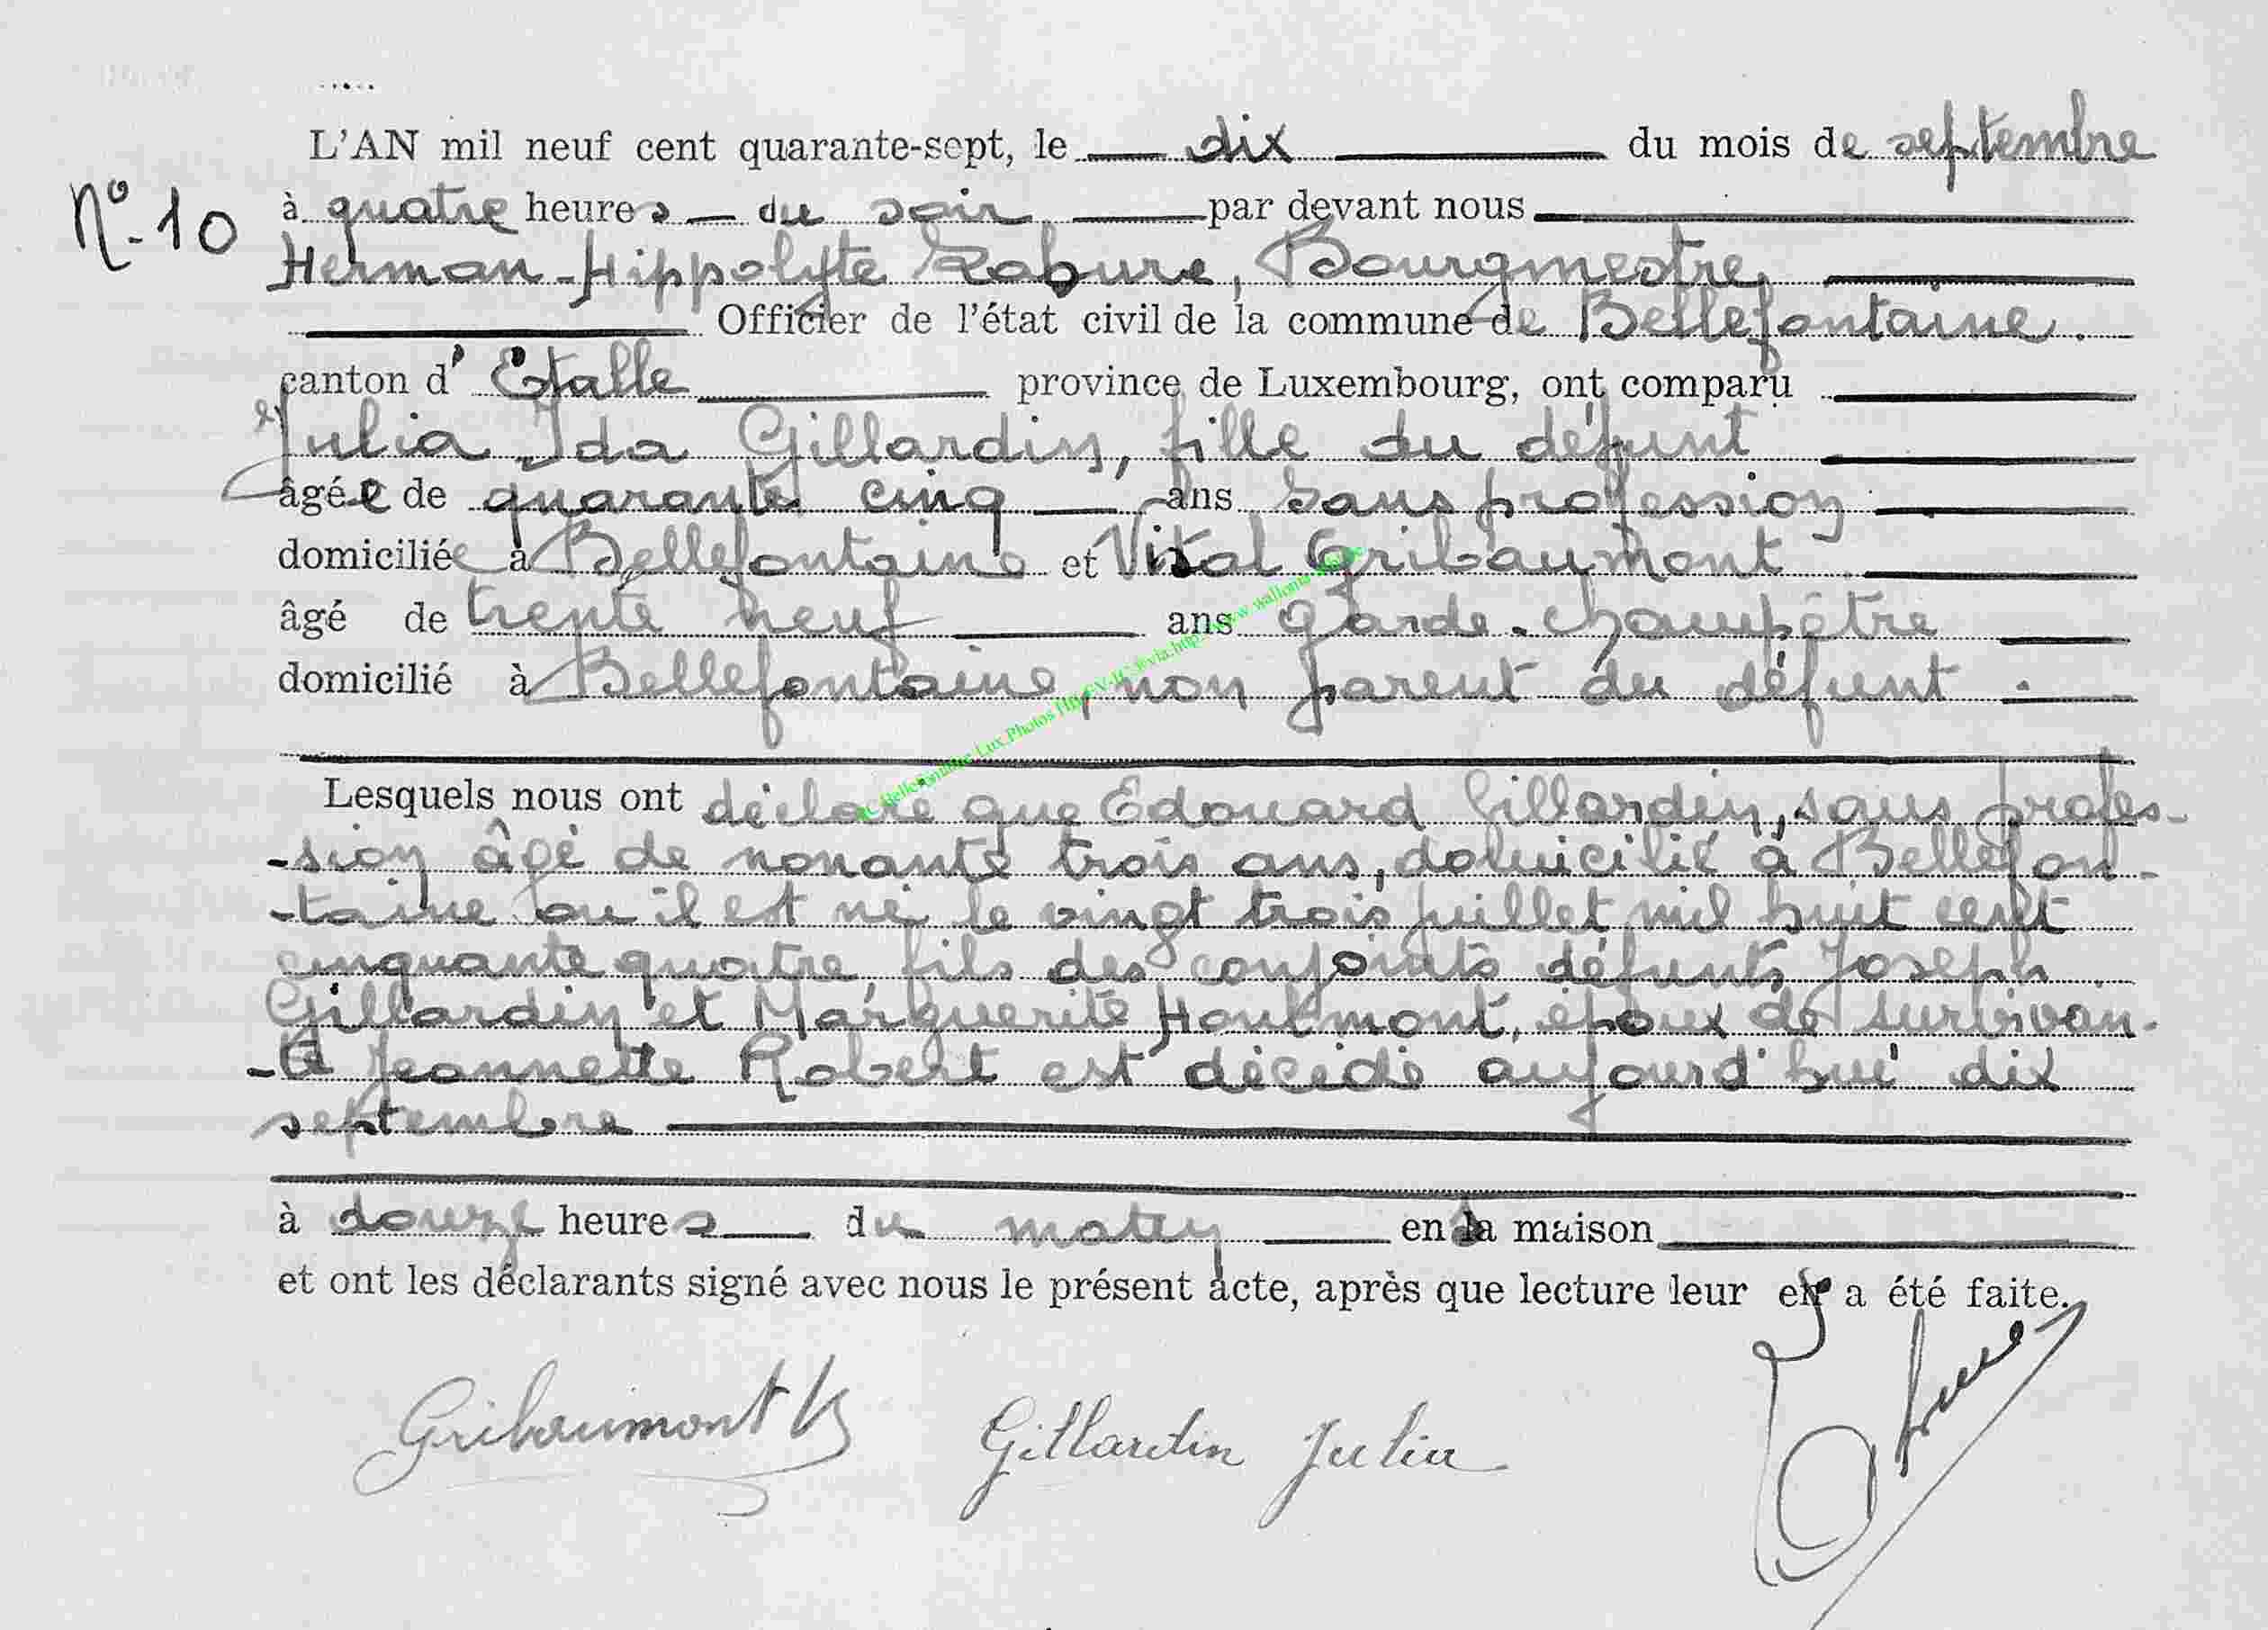 L'AN mil neuf cent quarante-sept, le dix du mois de septembre
N° 10
à quatre heures du soir par devant nous
Herman-Hippolyte Labure, Bourgmestre,
Officier de l'état civil de la commune de Bellefontaine.
canton d'Etalle province de Luxembourg, ont comparu
Julia Ida Gillardin, fille du défunt
âgée de quarante cinq ans sans profession
domiciliée à Bellefontaine et Vital Gribaumont
âgé de trente neuf ans garde-champêtre
domicilié à Bellefontaine, non parent du défunt.
Lesquels nous ont déclaré que Edouard Gillardin, sans profes-
-sion âgé de nonante trois ans, domicilié à Bellefon-
-taine ou il est né le vingt trois juillet mil huit cent
cinquante quatre, fils des conjoints défunts Joseph
Gillardin et Marguerite Hautmont, époux de survivan-
-te Jeannette Robert est décédé aujourd'hui dix
septembre
à douze heures du matin en sa maison
et ont les déclarants signé avec nous le présent acte, après que lecture leur en a été faite.
Gribaumont V Gillardin Julia